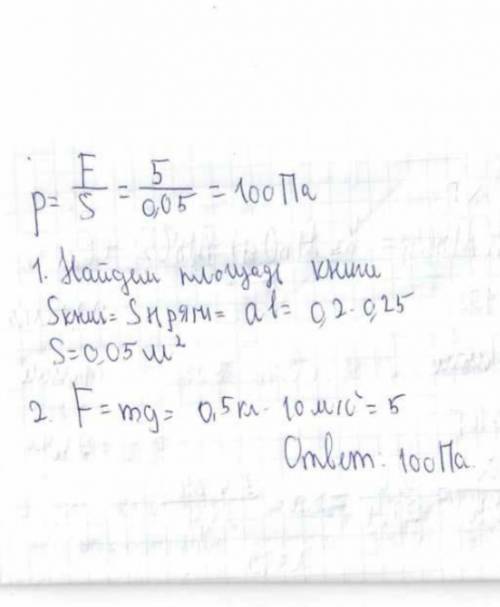 p = F/S = 5/0,05 = 100 Па
1. Найдем площадь книги
Sкниги = Sпрям = ab = 0,2 · 0,25
S = 0,05 м²
2. F = mg = 0,5 кг · 10 м/с² = 5
Ответ: 100 Па.